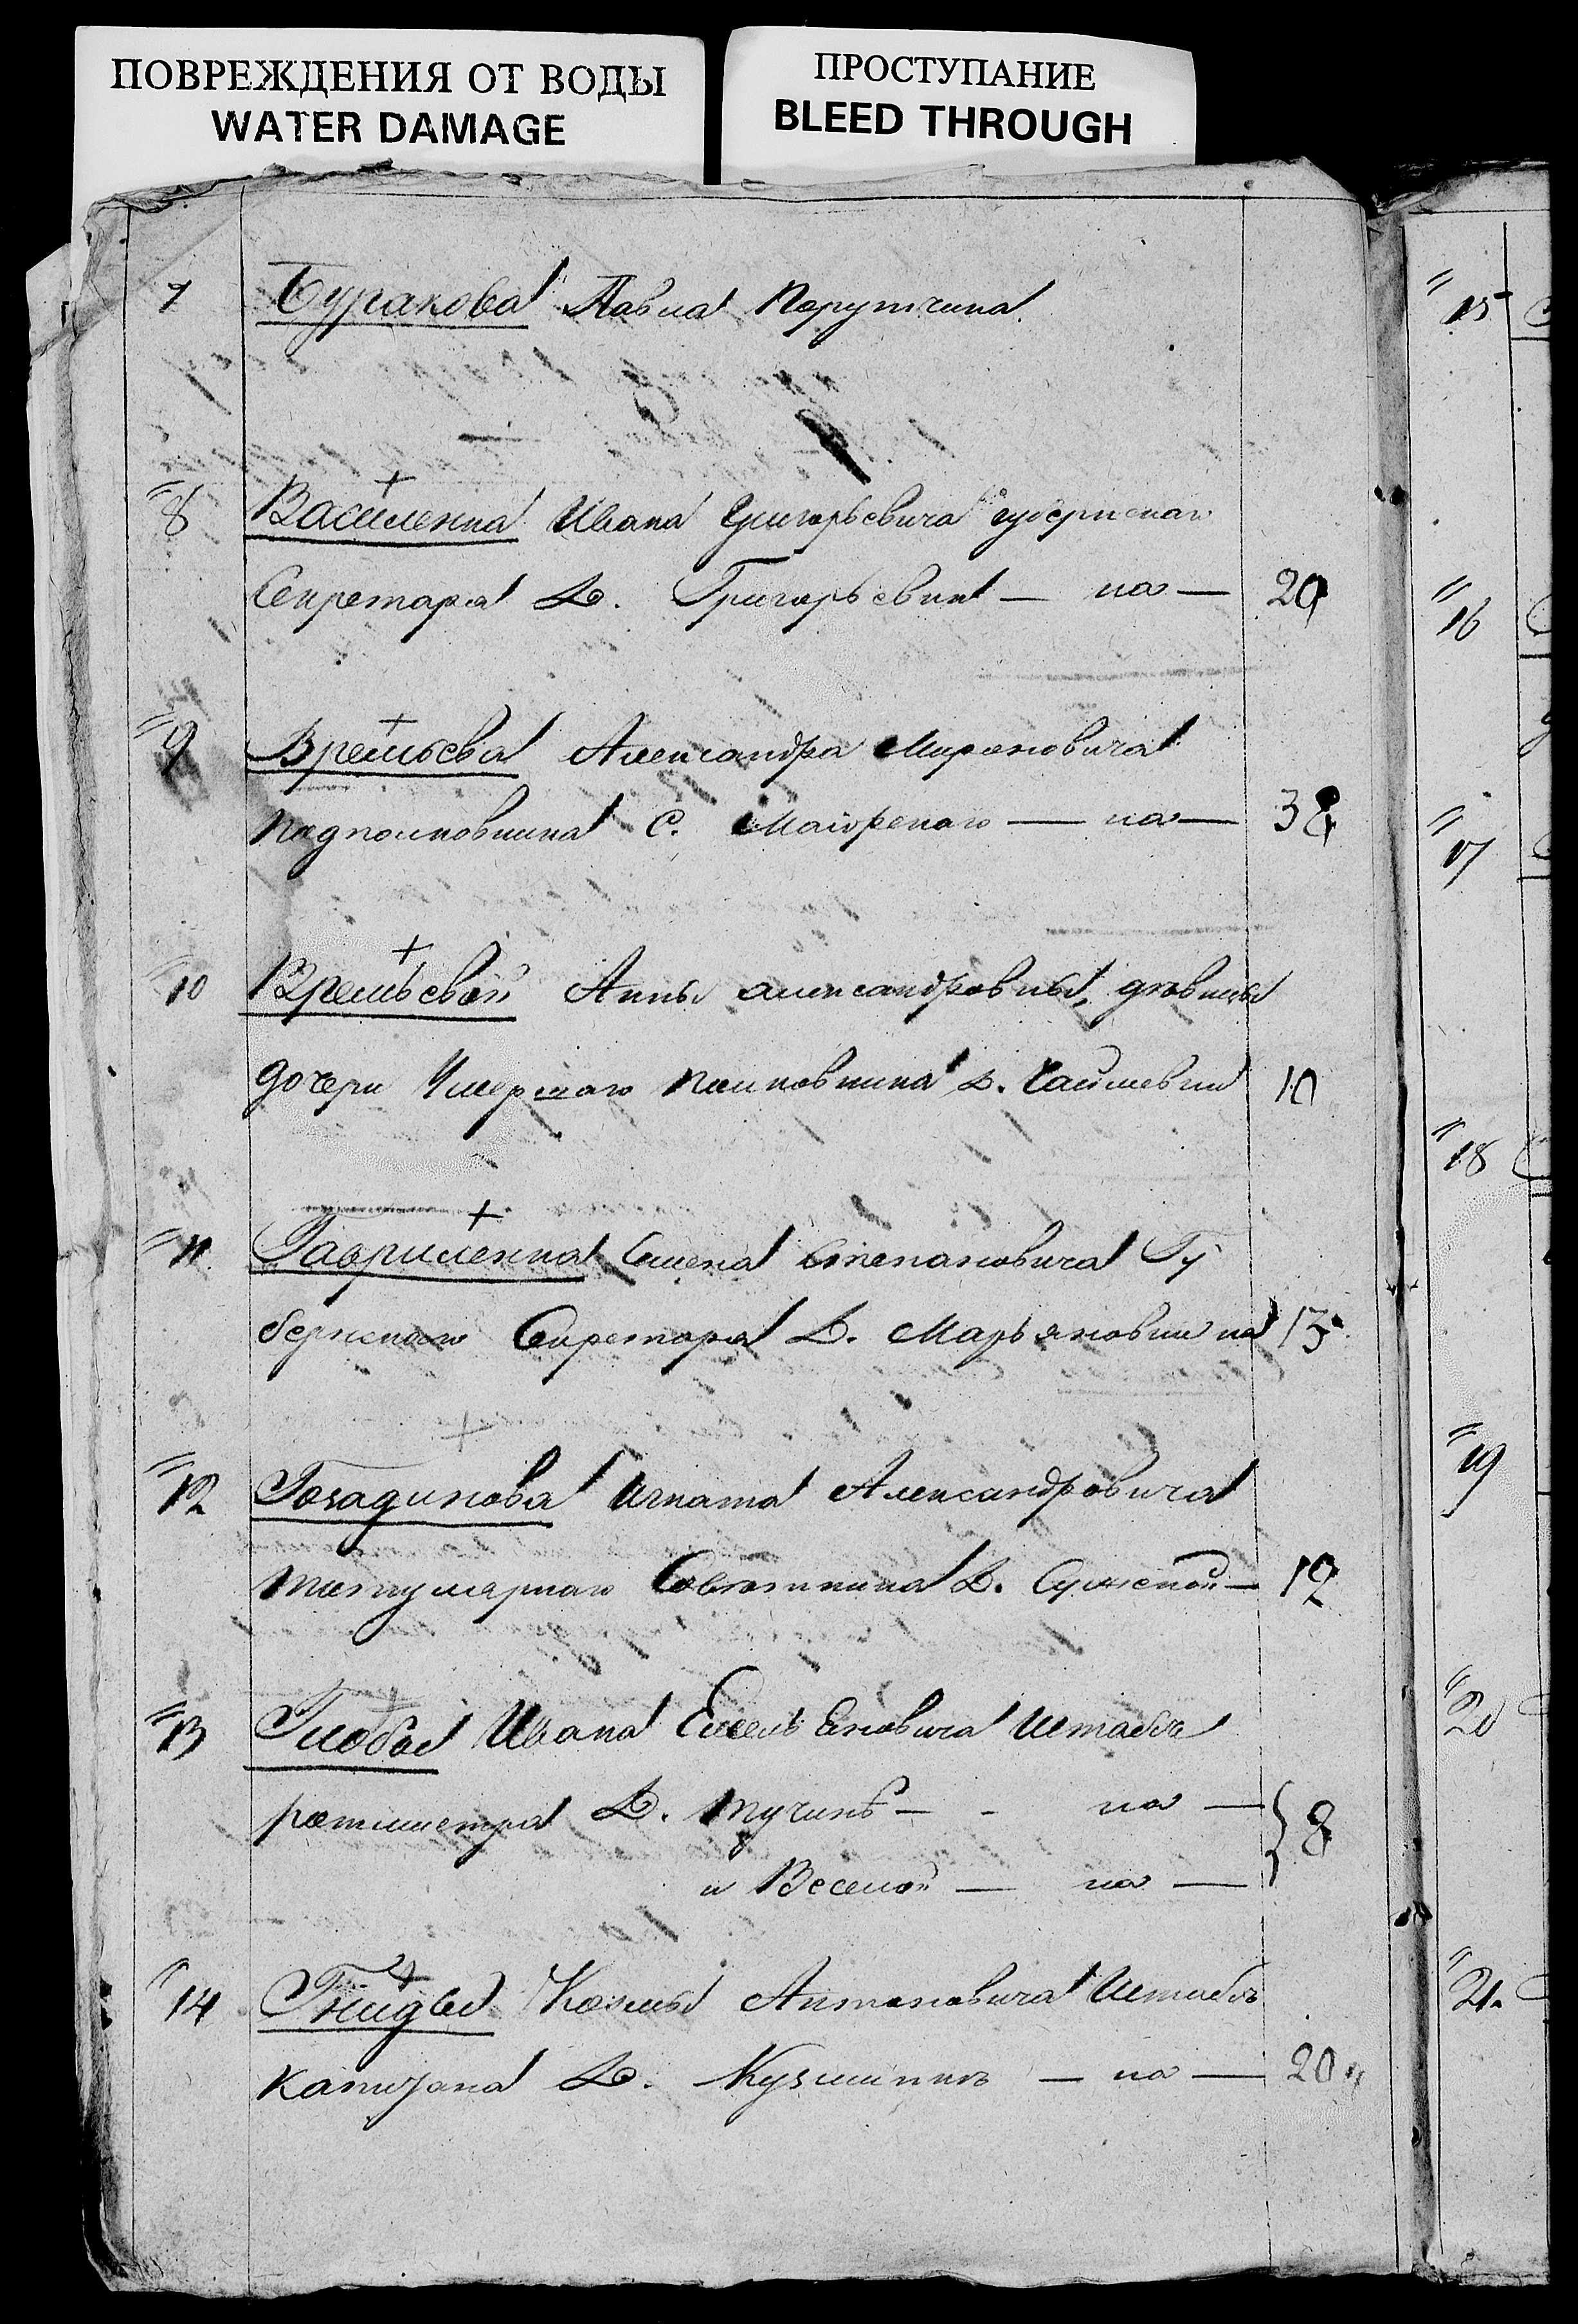 ПОВРЕЖДЕНИЯ ОТ ВОДЫ
WATER DAMAGE
ПРОСТУПАНИЕ
BLEED THROUGH
7 Буракова Павла Порутчика
8 Василенка Ивана Григорьевича губернскаго
Секретаря Д. Григорьевки — на — 20
9 Времьева Александра Мироновича
подполковника С. Маіорскаго — на — 38
10 Времьевой Анны Александровны, девицы
дочери Умершаго Полковника Д. 10
11 Гавриленка Семена Степановича Гу
бернскаго Секретаря Д. Марьяновки на 13
12 Гозадинова Игната Александровича
титулярнаго Советника Д. — 12
13 Глобы Ивана Емельяновича Штабъ
ротмистра Д. — - на —
и Веселой — на — } 8
14 Гниды Козмы Антоновича Штабсъ
Капитана Д. — на — 20
15
16
17
18
19
20
21.